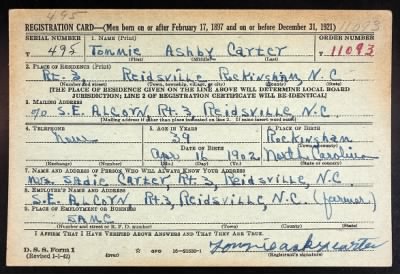 495 11093
REGISTRATION CARD—(Men born on or after February 17, 1897 and on or before December 31, 1921)
SERIAL NUMBER 1. NAME (Print) ORDER NUMBER
495 Tommie Ashby Carter 11093
(First) (Middle) (Last)
2. PLACE OF RESIDENCE (Print)
Rt. 3, Reidsville Rockingham, N.C.
(Number and street) (Town, township, village, or city) (County) (State)
[THE PLACE OF RESIDENCE GIVEN ON THE LINE ABOVE WILL DETERMINE LOCAL BOARD
JURISDICTION; LINE 2 OF REGISTRATION CERTIFICATE WILL BE IDENTICAL]
3. MAILING ADDRESS
c/o S.E. Alcorn, Rt. 3, Reidsville, N.C.
(Mailing address if other than place indicated on line 2. If same insert word same)
4. TELEPHONE 5. AGE IN YEARS 6. PLACE OF BIRTH
None 39 Rockingham
DATE OF BIRTH (Town or county)
1902 North Carolina
(Exchange) (Number) (Mo.) (Day) (Yr.) (State or country)
7. NAME AND ADDRESS OF PERSON WHO WILL ALWAYS KNOW YOUR ADDRESS
Mrs. Sadie Carter Rt. 3, Reidsville, N.C.
8. EMPLOYER'S NAME AND ADDRESS
S.E. Alcorn, Rt. 3, Reidsville, N.C. (farmer)
9. PLACE OF EMPLOYMENT OR BUSINESS
Same
(Number and street or R. F. D. number) (Town) (County) (State)
I AFFIRM THAT I HAVE VERIFIED ABOVE ANSWERS AND THAT THEY ARE TRUE.
D. S. S. Form 1
(Revised 1-1-42) (over) GPO 16—21630-1 (Registrant's signature)